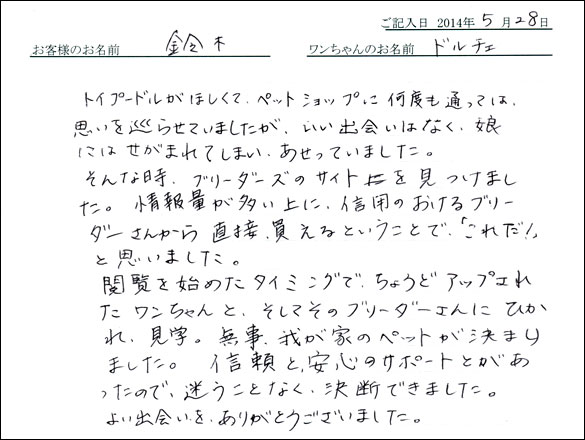 ご記入日 2014年 5月28日
お客様のお名前 鈴木 ワンちゃんのお名前 ドルチェ
トイプードルがほしくて、ペットショップに何度も通っては、
思いを巡らせていましたが、いい出会いはなく、娘
にはせがまれてしまい、あせっていました。
そんな時、ブリーダーズのサイトを見つけまし
た。情報量が多い上に、信用のおけるブリー
ダーさんから直接、買えるということで、「これだ!」
と思いました。
閲覧を始めたタイミングで、ちょうどアップされ
たワンちゃんと、そしてそのブリーダーさんにひか
れ、見学。無事、我が家のペットが決まり
ました。信頼と、安心のサポートとがあ
ったので、迷うことなく、決断できました。
よい出会いを、ありがとうございました。